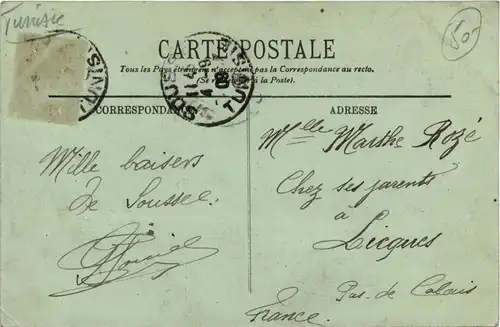 Tunisie
50
CARTE POSTALE
Tous les Pays étrangers n'acceptent pas la Correspondance au recto.
(Se renseigner à la Poste).
SOUSSE
TUNISIE
CORRESPONDANCE
ADRESSE
Mille baisers
de Sousse
Mlle Marthe Rozé
Chez ses parents
à
Licques
Pas-de Calais
France.